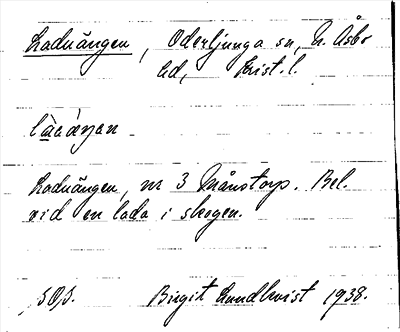 Laduängen, Oderljunga sn, N. Åsbo
hd, Krist. l.
Laduängen, nr 3 Månstorp. Bel.
vid en lada i skogen.
SOJ. Birgit Lundkvist 1938.